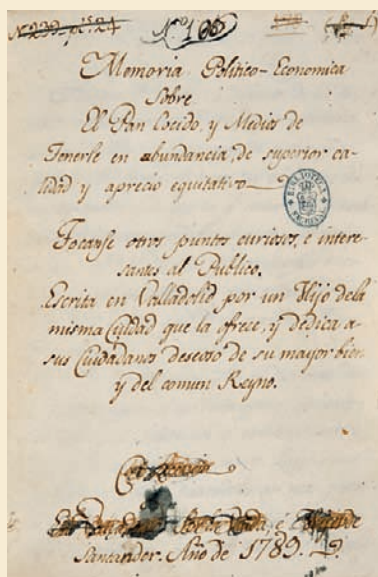 Nº 100
Memoria Politico-Economica
Sobre
El Pan Cocido, y Medios de
Tenerle en abundancia, de superior ca-
lidad y aprecio equitativo
BIBLIOTECA
Tocanse otros puntos curiosos, e intere-
santes al Publico.
Escrita en Valladolid por un Hijo dela
misma Ciudad que la ofrece, y dedica a
sus Ciudadanos deseoso de su mayor bien
y del comun Reyno.
Santander. Año de 1789.